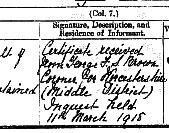 (Col. 7.)
Signature, Description, and
Residence of Informant.
Certificate received
from George F. S. Brown
Coroner for Worcestershire
(Middle District)
Inquest held
11th March 1915